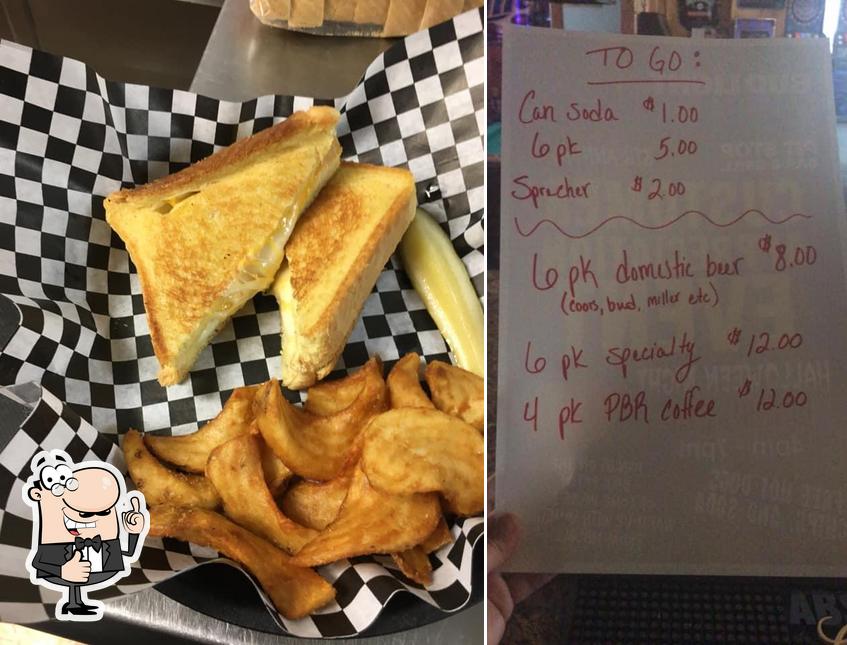 TO GO:
Can Soda $1.00
6 pk 5.00
Sprecher $2.00
6 pk domestic beer $8.00
(coors, bud, miller etc)
6 pk specialty $12.00
4 pk PBR coffee $12.00